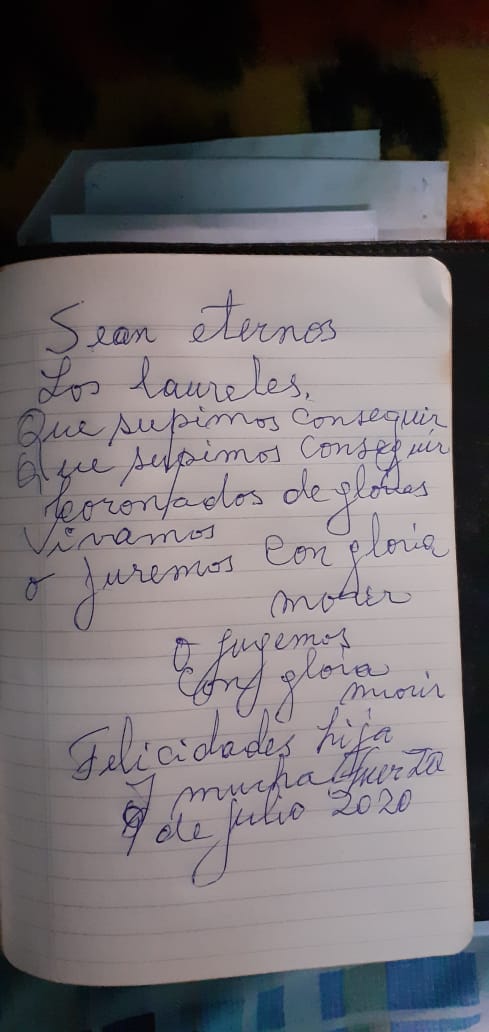 Sean eternos
Los laureles,
Que supimos conseguir
Que supimos conseguir
coronados de glorias
Vivamos
o juremos con gloria
morer
o jugemos
con gloia
miorir
Felicidades hija
y mucha fuerza
9 de julio 2020